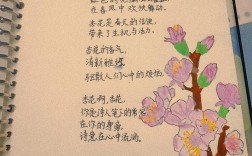 在春风中欢快舞动。
杏花是春天的信使,
带来了生机与活力。
杏花的香气,
清新雅
人们心中的烦恼。
杏花啊,杏花,
你是诗人笔下的常
在你的身旁,
诗意在心中流淌。